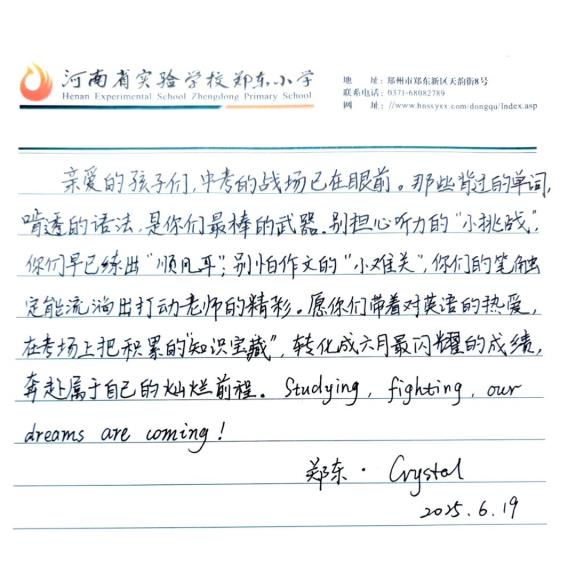 河南省实验学校郑东小学
Henan Experimental School Zhengdong Primary School
地 址: 郑州市郑东新区天韵街8号
联系电话: 0371-68082789
网 址: //www.hnssyxx.com/dongqu/index.asp
亲爱的孩子们,中考的战场已在眼前。那些背过的单词,
啃透的语法,是你们最棒的武器。别担心听力的“小挑战”,
你们早已练出“顺风耳”;别怕作文的“小难关”,你们的笔触
定能流淌出打动老师的精彩。愿你们带着对英语的热爱,
在考场上把积累的“知识宝藏”,转化成六月最闪耀的成绩,
奔赴属于自己的灿烂前程。Studying, fighting, our
dreams are coming!
郑东·Crystal
2025.6.19